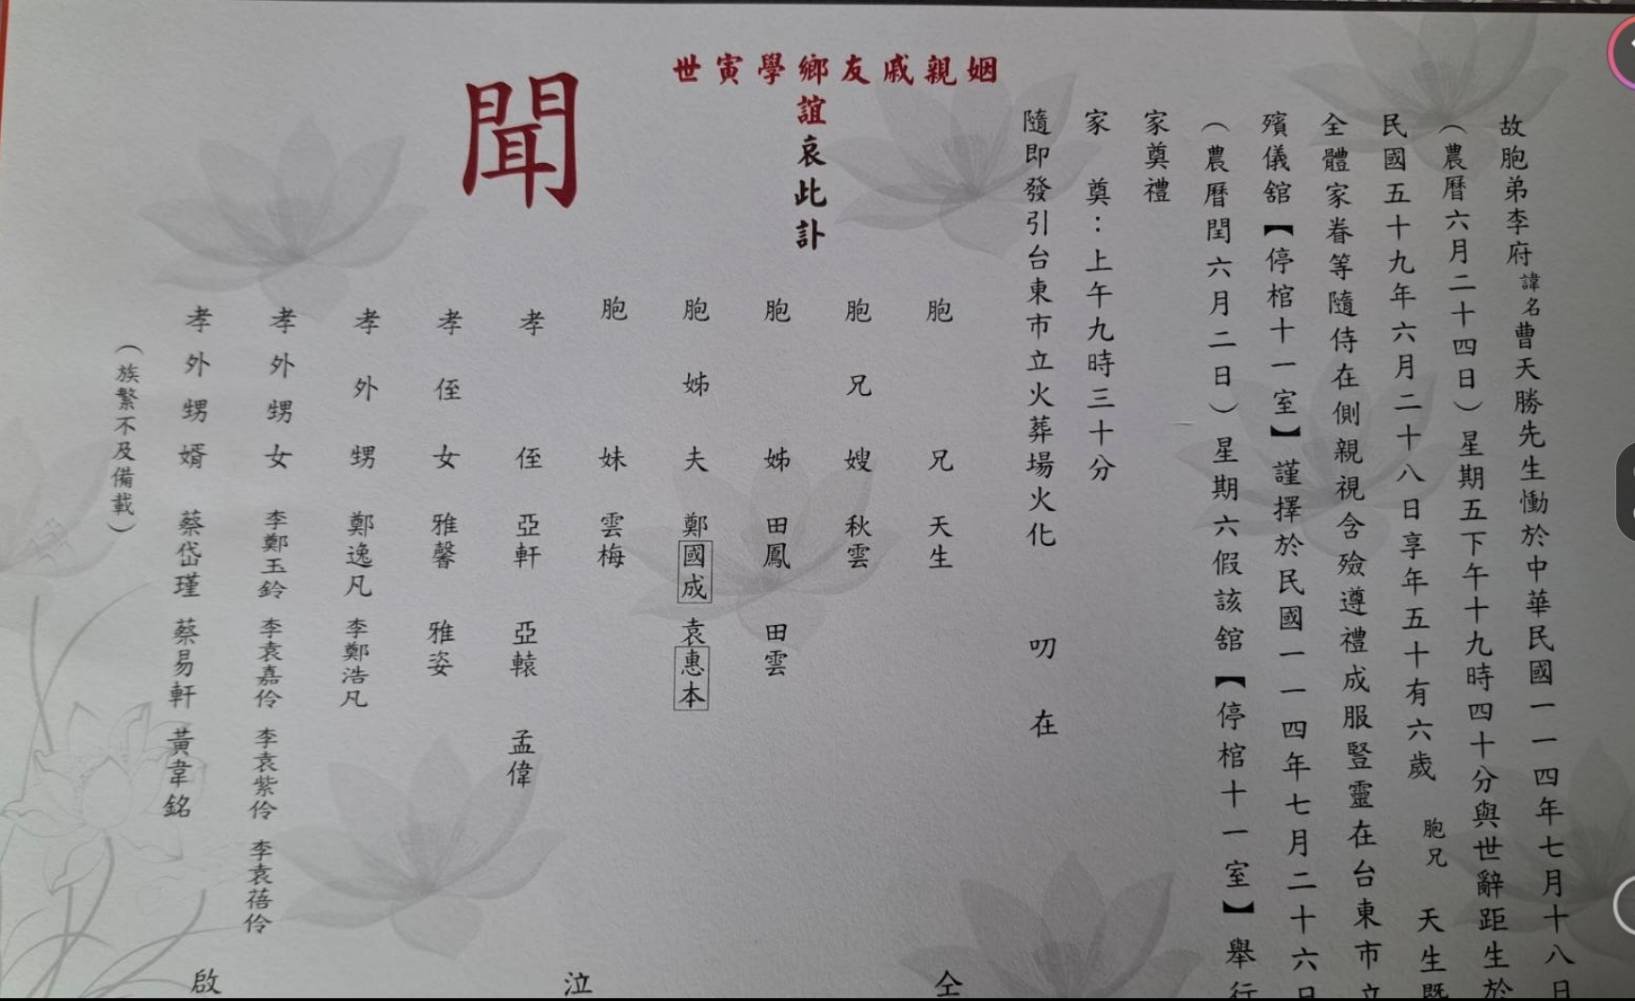 故胞弟李府諱名曹天勝先生慟於中華民國一一四年七月十八日
（農曆六月二十四日）星期五下午十九時四十分與世辭距生於
民國五十九年六月二十八日享年五十有六歲 胞兄 天生既
全體家眷等隨侍在側親視含殮遵禮成服豎靈在台東市立
殯儀舘【停棺十一室】謹擇於民國一一四年七月二十六日
（農曆閏六月二日）星期六假該舘【停棺十一室】舉行
家奠禮
家 奠：上午九時三十分
隨即發引台東市立火葬場火化 叨在
姻親戚友鄉學寅世
誼哀此訃
聞
胞兄 天生
胞兄嫂 秋雲
胞姊 田鳳 田雲
胞姊夫 鄭國成 袁惠本
胞妹 雲梅
孝侄 亞軒 亞轅 孟偉
孝侄女 雅馨 雅姿
孝外甥 鄭逸凡 李鄭浩凡
孝外甥女 李鄭玉鈴 李袁嘉伶 李袁紫伶 李袁蓓伶
孝外甥婿 蔡岱瑾 蔡易軒 黃韋銘
（族繁不及備載）
仝
泣
啟